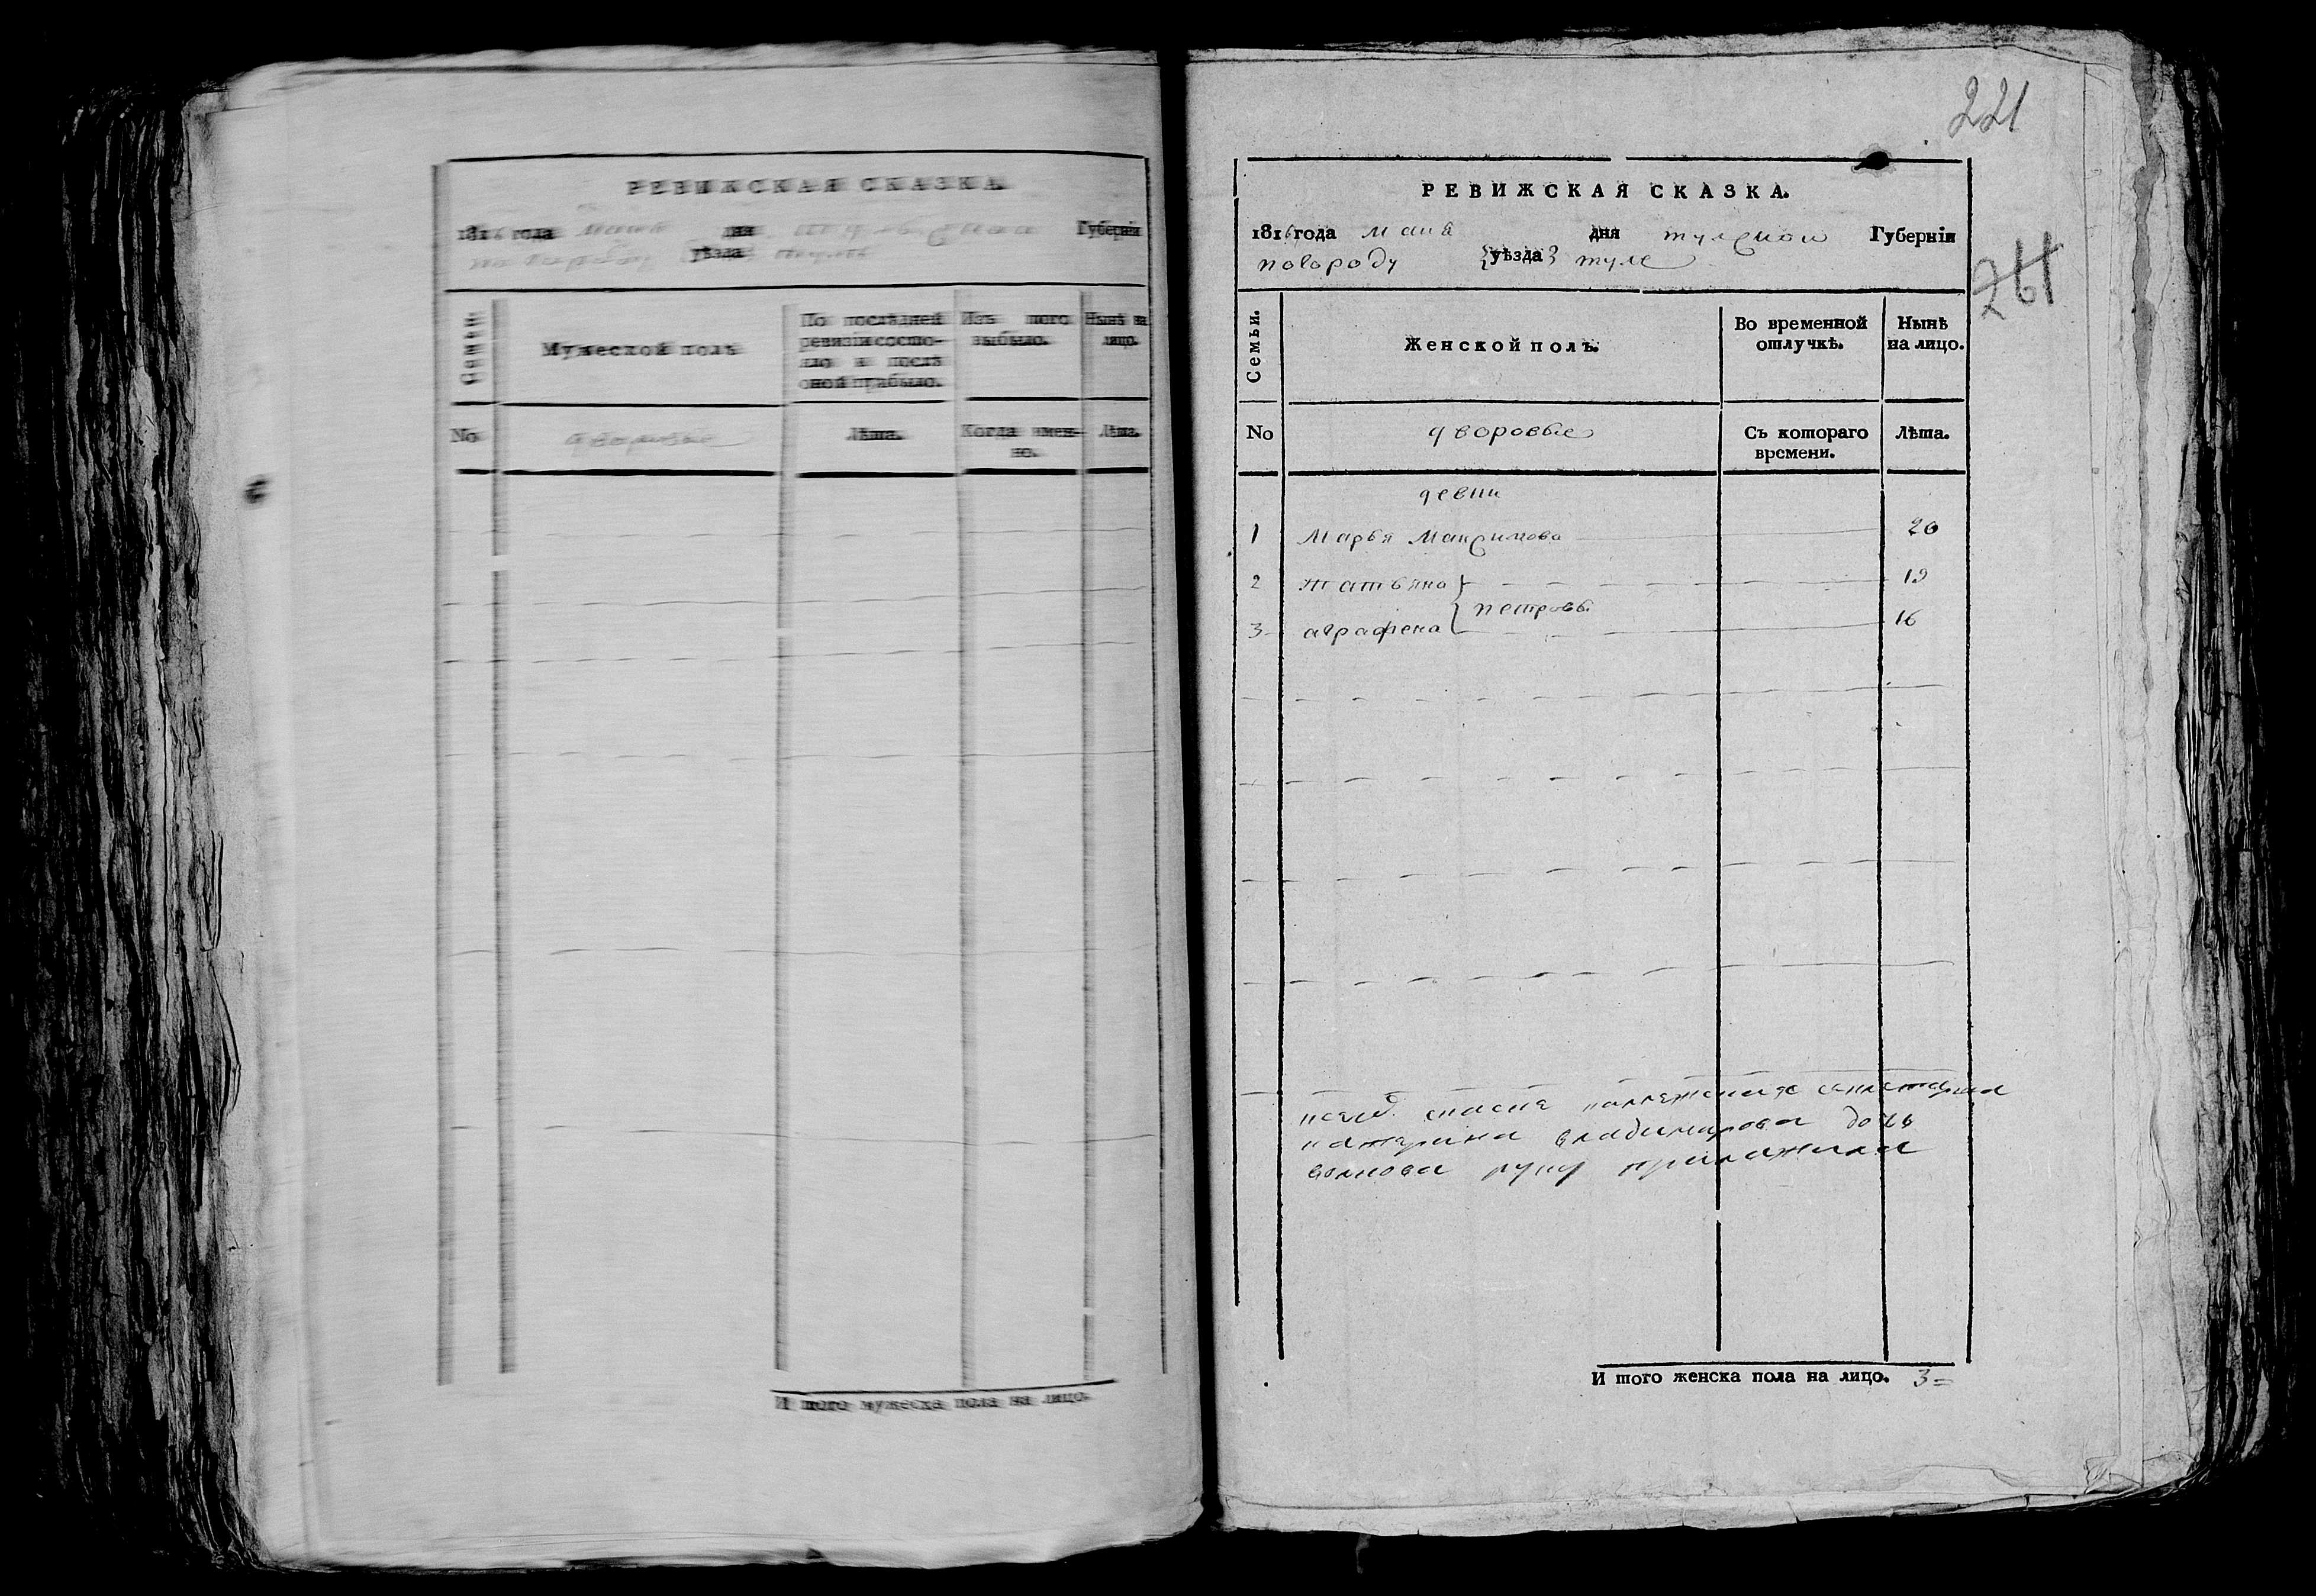 РЕВИЖСКАЯ СКАЗКА.
1816 года маия дня Губерніи
по городу уѣзда туле
Семьи. Мужеской полъ По послѣдней ревизіи состояло и послѣ оной прибыло. Изъ того выбыло. Нынѣ на лицо.
No дворовые Лѣта. Когда именно. Лѣта.
И того мужеска пола на лицо.
221
261
РЕВИЖСКАЯ СКАЗКА.
1816 года маия дня тулской Губерніи
погороду уѣзда туле
Семьи. Женской полъ. Во временной отлучкѣ. Нынѣ на лицо.
No дворовые Съ котораго времени. Лѣта.
девки
1 Марья Максимова 20
2 татьяна 19
петровы
3 аграфена 16
скаске
катерина владимирова дочь
волкова руку приложила
И того женска пола на лицо. 3